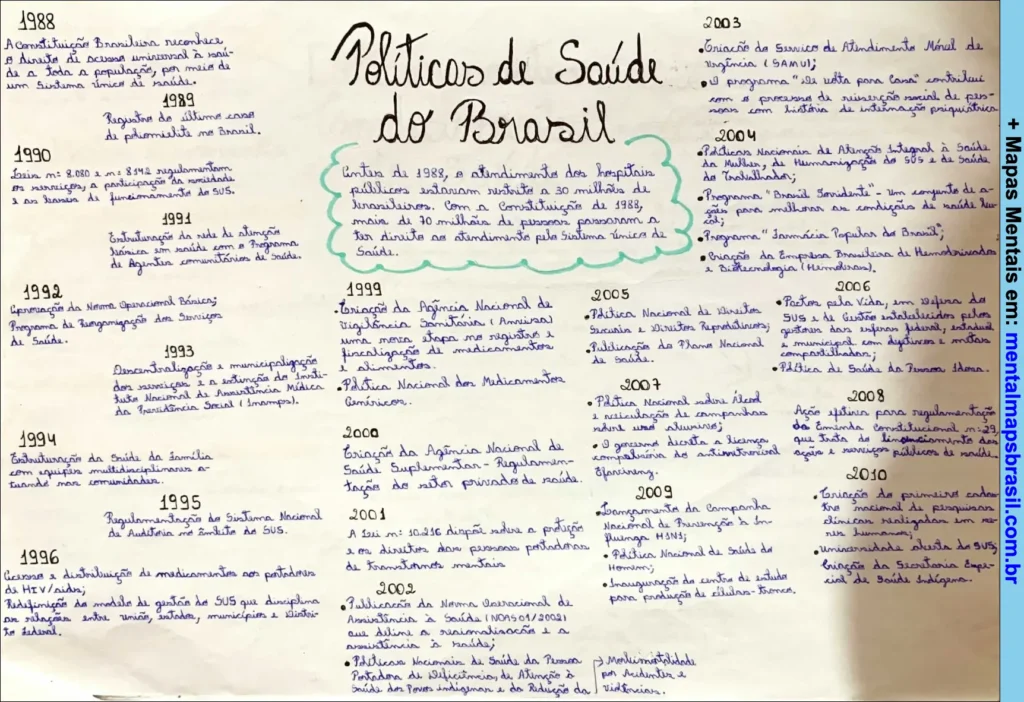 Políticas de Saúde
do Brasil
Antes de 1988, o atendimento dos hospitais
públicos estavam restrito a 30 milhões de
brasileiros. Com a Constituição de 1988,
mais de 70 milhões de pessoas passaram a
ter direito ao atendimento pelo Sistema Único de
Saúde.
1988
A Constituição Brasileira reconhece
o direito de acesso universal à saú-
de a toda a população, por meio de
um Sistema Único de saúde.
1989
Registro do último caso
de poliomielite no Brasil.
1990
Leis n: 8.080 e n: 8142 regulamentam
os serviços, a participação da sociedade
e as bases de funcionamento do SUS.
1991
Estruturação da rede de atenção
básica em saúde com o Programa
de Agentes comunitários de Saúde.
1992
Aprovação da Norma Operacional Básica;
Programa de Reorganização dos Serviços
de Saúde.
1993
Descentralização e municipalização
dos serviços e a extinção do Insti-
tuto Nacional de Assistência Médica
da Previdência Social (Inamps).
1994
Estruturação da Saúde da Família
com equipes multidisciplinares a-
tuando nas comunidades.
1995
Regulamentação do Sistema Nacional
de Auditoria no âmbito do SUS.
1996
Acesso e distribuição de medicamentos aos portadores
de HIV/aids;
Redefinição do modelo de gestão do SUS que disciplina
as relações entre união, estados, municípios e Distri-
to Federal.
1999
• Criação da Agência Nacional de
Vigilância Sanitária (Anvisa)
uma nova etapa no registro e
fiscalização de medicamentos
e alimentos.
• Política Nacional dos Medicamentos
Genéricos.
2000
Criação da Agência Nacional de
Saúde Suplementar - Regulamen-
tação do setor privado de saúde.
2001
A Lei n: 10.216 dispõe sobre a proteção
e os direitos das pessoas portadoras
de transtornos mentais
2002
• Publicação da Norma Operacional de
Assistência à Saúde (NOAS 01/2002)
que define a regionalização e a
assistência à saúde;
• Políticas Nacionais de Saúde da Pessoa
Portadora de Deficiência, de Atenção à
Saúde dos Povos indígenas e da Redução da
Morbimortalidade
por Acidentes e
Violências.
2003
• Criação do Serviço de Atendimento Móvel de
Urgência (SAMU);
• O programa "De Volta para Casa" contribui
com o processo de reinserção social de pes-
soas com história de internação psiquiátrica
2004
• Políticas Nacionais de Atenção Integral à Saúde
da Mulher, de Humanização do SUS e de Saúde
do Trabalhador;
• Programa "Brasil Sorridente" - Um conjunto de a-
ções para melhorar as condições de saúde bu-
cal;
• Programa "Farmácia Popular do Brasil";
• Criação da Empresa Brasileira de Hemoderivados
e Biotecnologia (Hemobras).
2005
• Política Nacional de Direitos
Sexuais e Direitos Reprodutivos;
• Publicação do Plano Nacional
de Saúde.
2006
• Pactos pela Vida, em Defesa do
SUS e de Gestão estabelecidos pelos
gestores das esferas federal, estadual
e municipal com objetivos e metas
compartilhadas;
• Política de Saúde da Pessoa Idosa.
2007
• Política Nacional sobre Álcool
e veiculação de campanhas
sobre uso abusivo;
• O governo decreta a licença
compulsória do antirretroviral
Efavirenz.
2008
Ação efetiva para regulamentação
da Emenda Constitucional n: 29,
que trata do financiamento das
ações e serviços públicos de saúde.
2009
• Lançamento da Campanha
Nacional de Prevenção à In-
fluenza H1N1;
• Política Nacional de Saúde do
Homem;
• Inauguração do centro de estudo
para produção de células-tronco.
2010
• Criação do primeiro cadas-
tro nacional de pesquisas
clínicas realizadas em se-
res humanos;
• Universidade aberta do SUS;
Criação da Secretaria Espe-
cial de Saúde Indígena.
+ Mapas Mentais em: mentalmapsbrasil.com.br